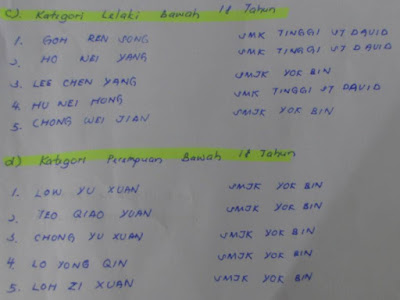 c). Kategori Lelaki Bawah 18 Tahun
1. GOH REN SONG SMK TINGGI ST DAVID
2. HO WEI YANG SMK TINGGI ST DAVID
3. LEE CHEN YANG SMJK YOK BIN
4. HU WEI HONG SMK TINGGI ST DAVID
5. CHONG WEI JIAN SMJK YOK BIN
d). Kategori Perempuan Bawah 18 Tahun
1. LOW YU XUAN SMJK YOK BIN
2. TEO QIAO YUAN SMJK YOK BIN
3. CHONG YU XUAN SMJK YOK BIN
4. LO YONG QIN SMJK YOK BIN
5. LOH ZI XUAN SMJK YOK BIN